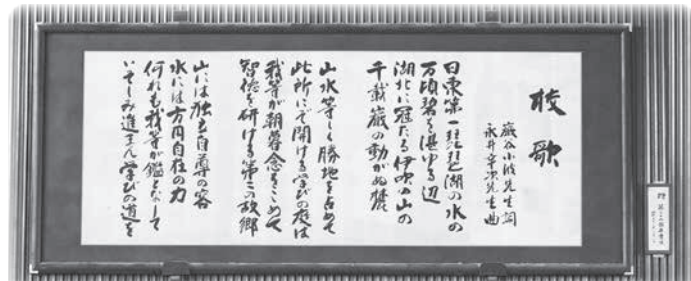 校歌
巌谷小波先生詞
永井幸次先生曲
日東第一琵琶湖の水の
万頃碧を湛ゆる辺
湖北に冠たる伊吹の山の
千載巌の動がぬ麓
山水等しく勝地を占めて
此所にぞ開ける学びの庭は
我等が朝暮念をこめて
智徳を研ける第二の故郷
山には独立自尊の容
水には方円自在の力
何れも我等が鑑となして
いそしみ進まん学びの道を